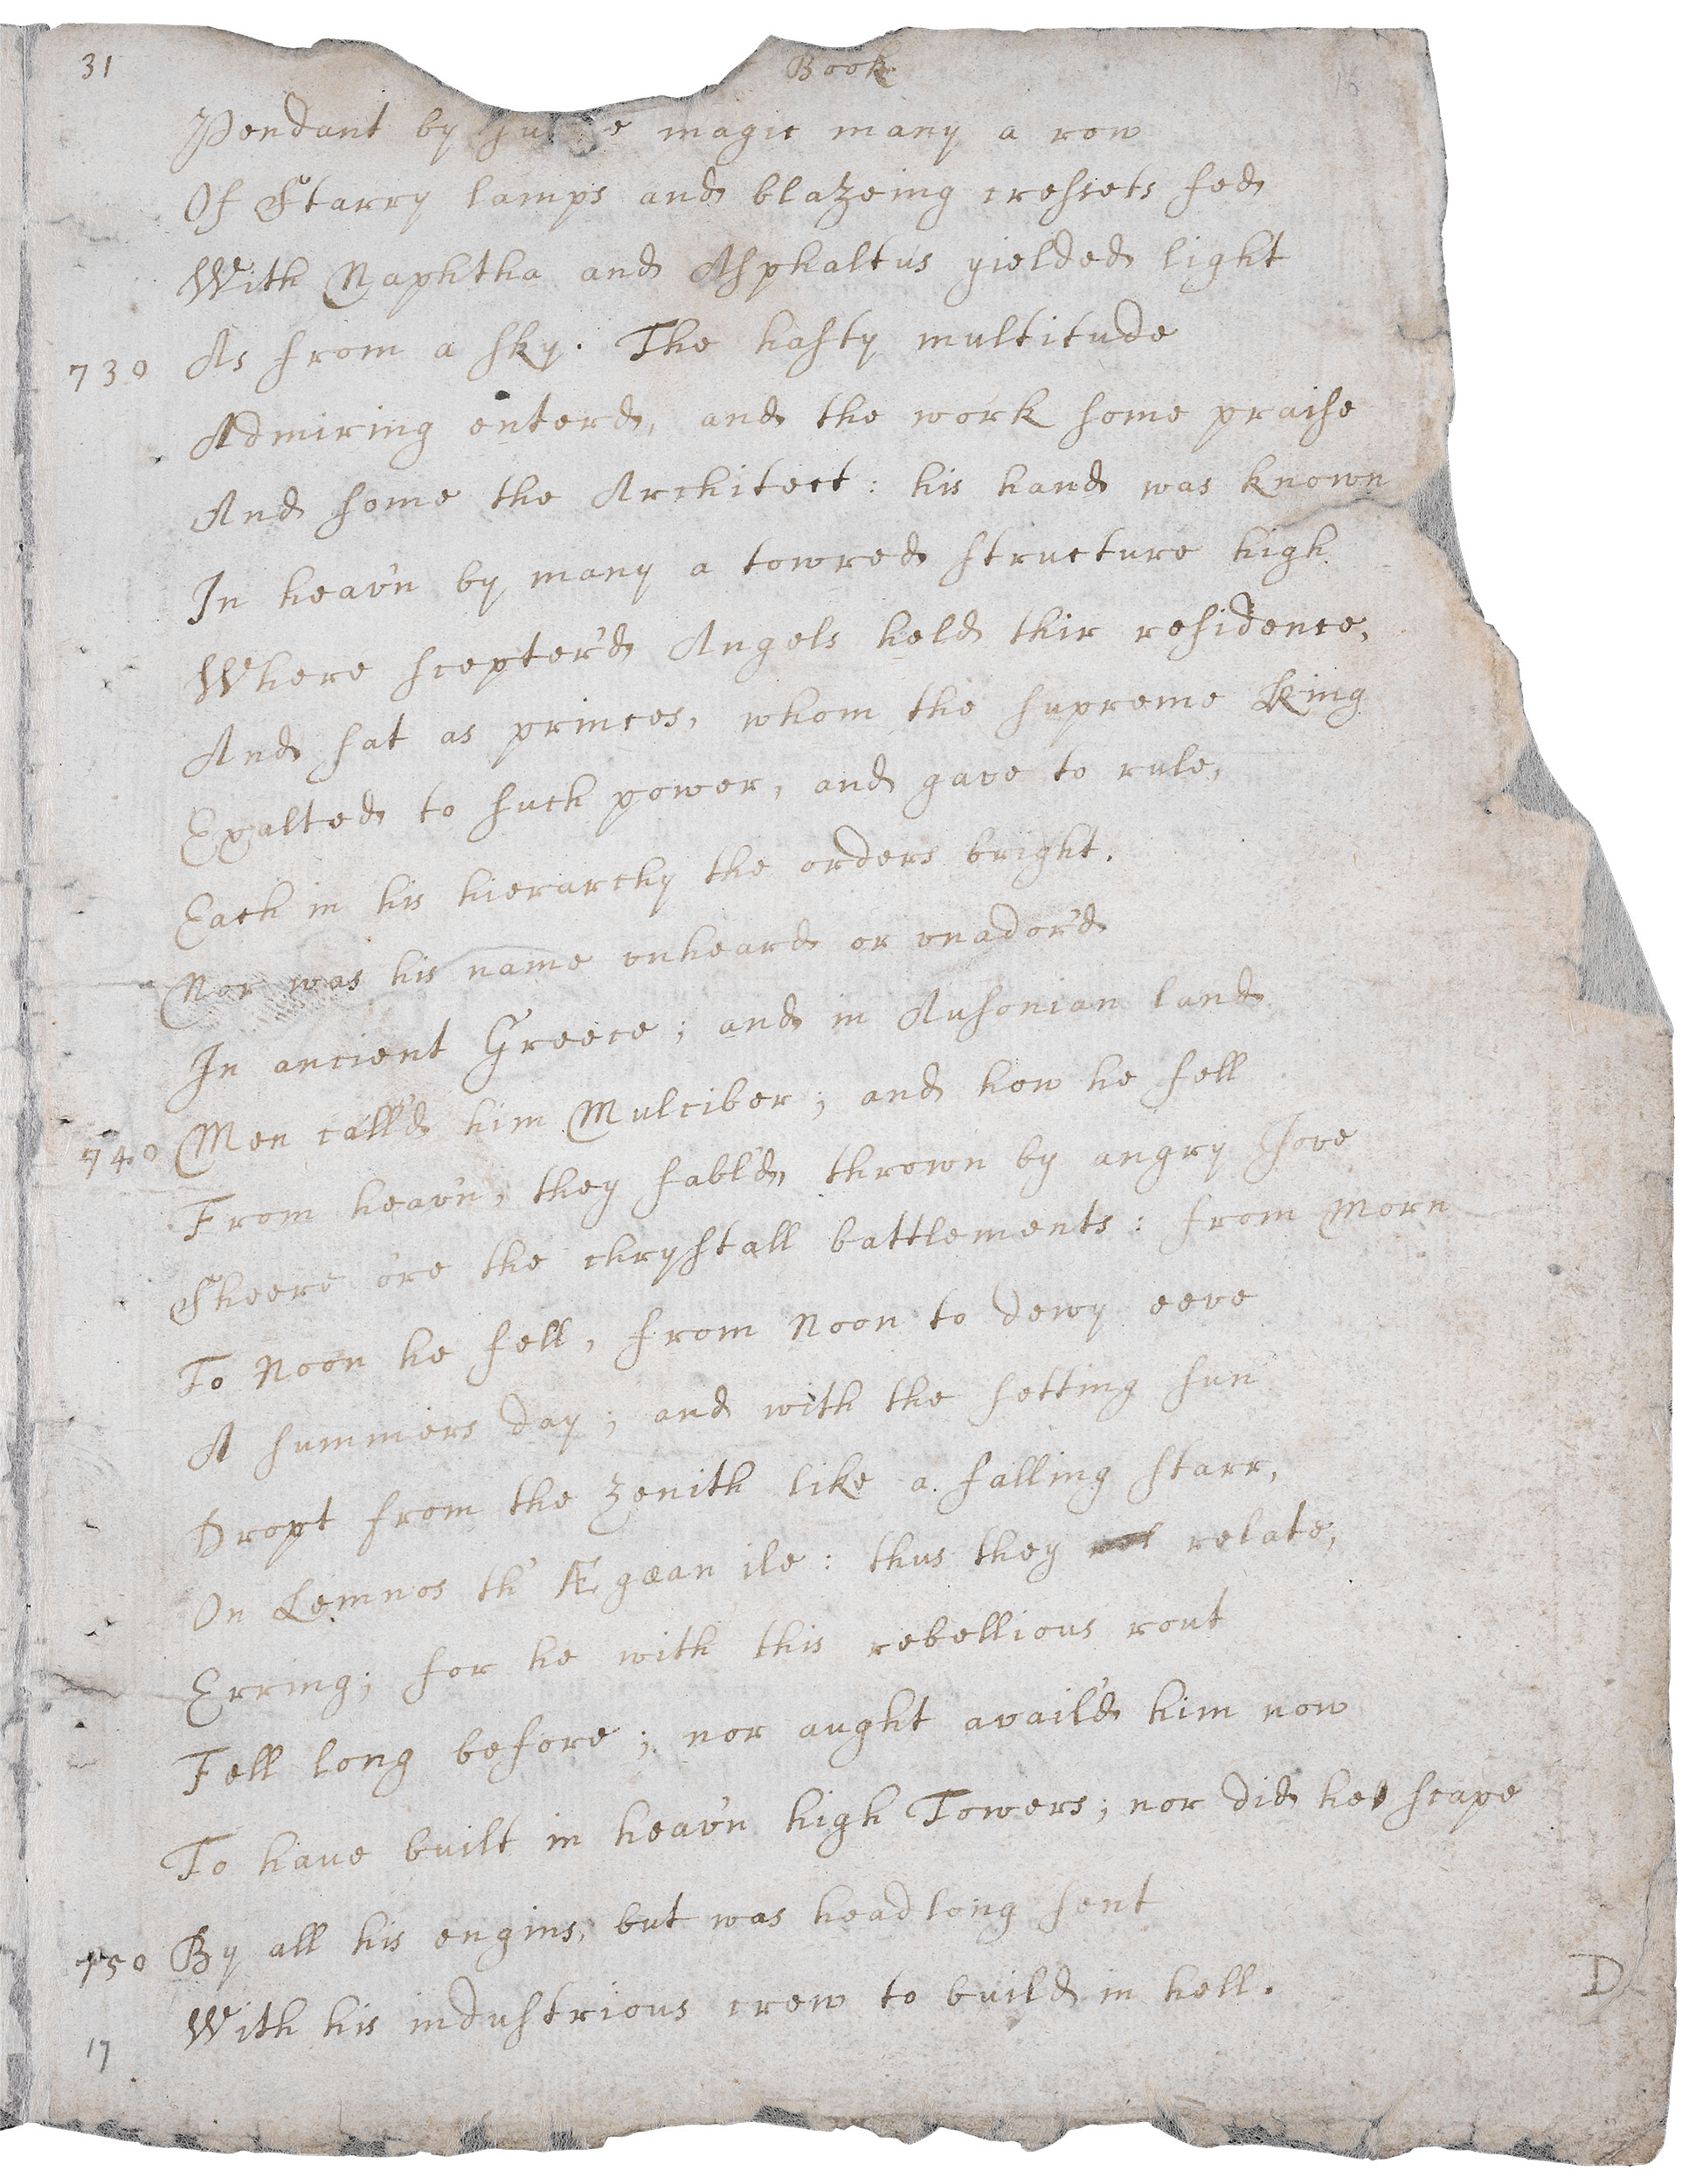 31
Book
Pendant by magic many a row
Of Starry lamps and blazeing cressets fed
With Naphtha and Asphaltus yielded light
730 As from a sky. The hasty multitude
Admiring enterd, and the work some praise
And some the Architect: his hand was known
In heav'n by many a towred structure high
Where scepter'd Angels held thir residence,
And sat as princes, whom the supreme King
Exalted to such power, and gave to rule,
Each in his hierarchy the orders bright.
Nor was his name vnheard or vnador'd
In ancient Greece; and in Ausonian land
740 Men call'd him Mulciber; and how he fell
From heav'n, they fabl'd, thrown by angry Jove
Sheere o're the chrystall battlements: from Morn
To Noon he fell, from Noon to dewy eeve
A summers day; and with the setting sun
Dropt from the zenith like a falling starr,
On Lemnos th' Ægæan ile: thus they relate,
Erring; for he with this rebellious rout
Fell long before; nor aught avail'd him now
To haue built in heav'n high Towers; nor did he scape
750 By all his engins, but was headlong sent
With his industrious crew to build in hell.
17
D